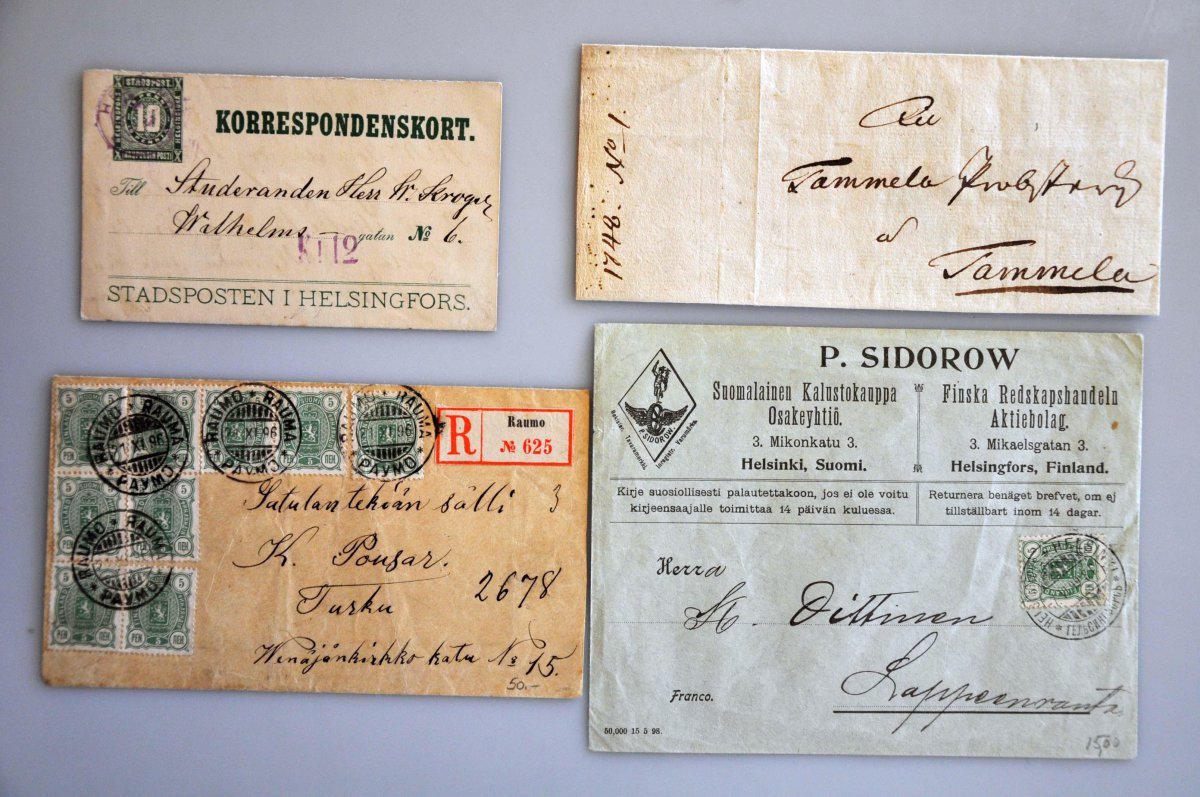 STADSPOST.
10
KORRESPONDENSKORT.
Till Studeranden Herr W. Kroger
Wilhelms-gatan № 6.
K 12
STADSPOSTEN I HELSINGFORS.
1748. No 1.
Tammela
Tammela
RAUMO ★ RAUMA
21 XI 96
РАУМО
RAUMO ★ RAUMA
РАУМО
RAUMA
XI 96
РАУМО
RAUMO ★ RAUMA
РАУМО
5 5
PEN ПЕН
R
Raumo
№ 625
Satulantekiän sälli 3
K. Pousar.
Turku 2678
Wenäjänkirkko katu No 15.
50.-
P. SIDOROW
P. SIDOROW.
Suomalainen Kalustokauppa
Osakeyhtiö.
3. Mikonkatu 3.
Helsinki, Suomi.
Finska Redskapshandeln
Aktiebolag.
3. Mikaelsgatan 3.
Helsingfors, Finland.
Kirje suosiollisesti palautettakoon, jos ei ole voitu
kirjeensaajalle toimittaa 14 päivän kuluessa.
Returnera benäget brefvet, om ej
tillställbart inom 14 dagar.
Herra
Dittinen
Lappeenranta
Franco.
50,000 15 5 98.
15,00